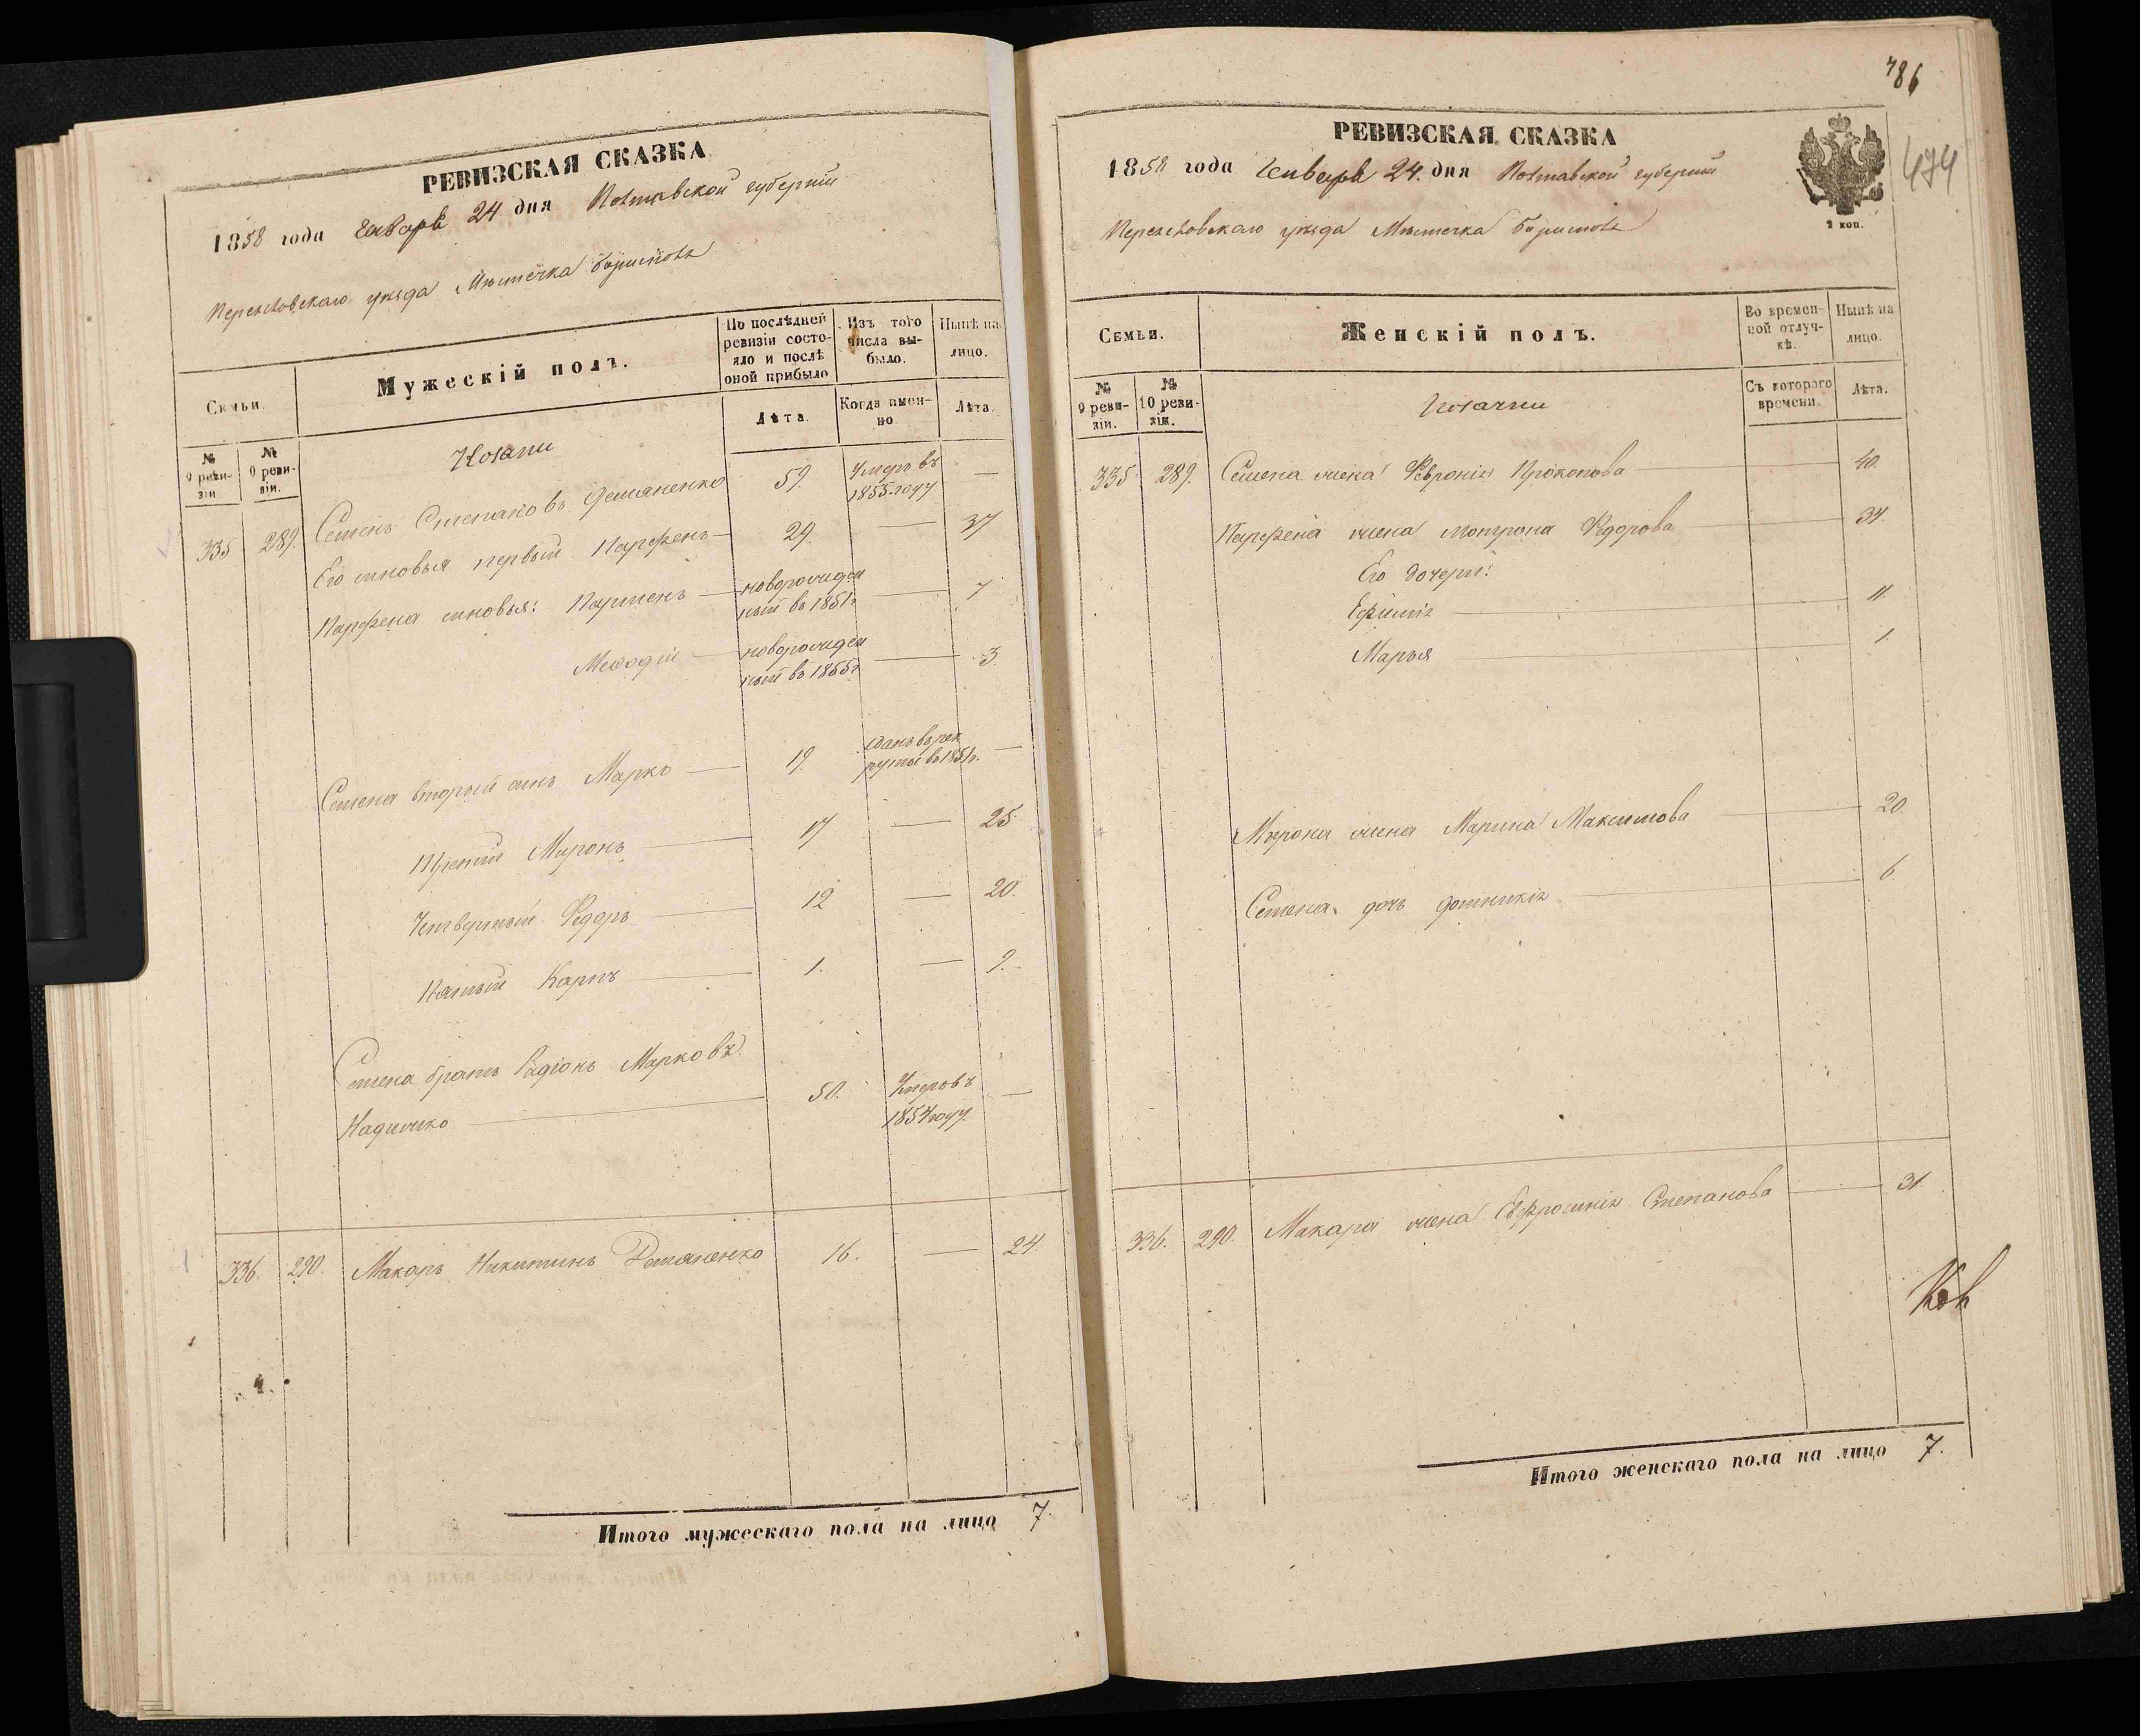 РЕВИЗСКАЯ СКАЗКА
1858 года Генваря 24 дня Полтавской губернии
уезда Местечка
Семьи.
Мужескій полъ.
По послѣдней ревизіи состояло и послѣ оной прибыло
Изъ того числа выбыло.
Нынѣ на лицо.
№ 9 ревизіи
№ 0 ревизіи.
Лѣта.
Когда именно
Лѣта.
Козаки
335 289. Семенъ Степановъ Демяненко 59. Умеръ въ 1855 году —
Его сыновья первый Парфенъ — 29. — 37
Парфена сыновья: Пармень — новорожденный въ 1851г — 7
Мефодій — новорожденный въ 1855г — 3.
Семена вторый сынъ Марко — 19. сданъ въ рекруты въ 1851г. —
Третій Миронъ — 17 — 25.
Четвертый Федоръ — 12 — 20.
Пятый Карпъ — 1. — 9.
Семена братъ Радіонъ Марковъ
50. Умеръ въ 1854 году. —
336. 290. Макаръ Никитинъ Демяненко 16. — 24.
4.
Итого мужескаго пола на лицо 7.
786
474
РЕВИЗСКАЯ СКАЗКА
1858 года Генваря 24. дня Полтавской губерніи
уезда Местечка
2 коп.
Семьи.
Женскій полъ.
Во временной отлучкѣ.
Нынѣ на лицо.
№ 9 ревизіи.
№ 10 ревизіи.
Съ котораго времени.
Лѣта.
Козачки
335 289. Семена жена Февронія Прокопова — 40.
Парфена жена Мотрона Федорова — 34.
Его дочери:
Ефимія — 11.
Марья — 1
Мирона жена Марина Максимова — 20.
Семена дочь Домникія — 6.
336. 290. Макара жена Евфросинія Степанова — 31.
Итого женскаго пола на лицо 7.